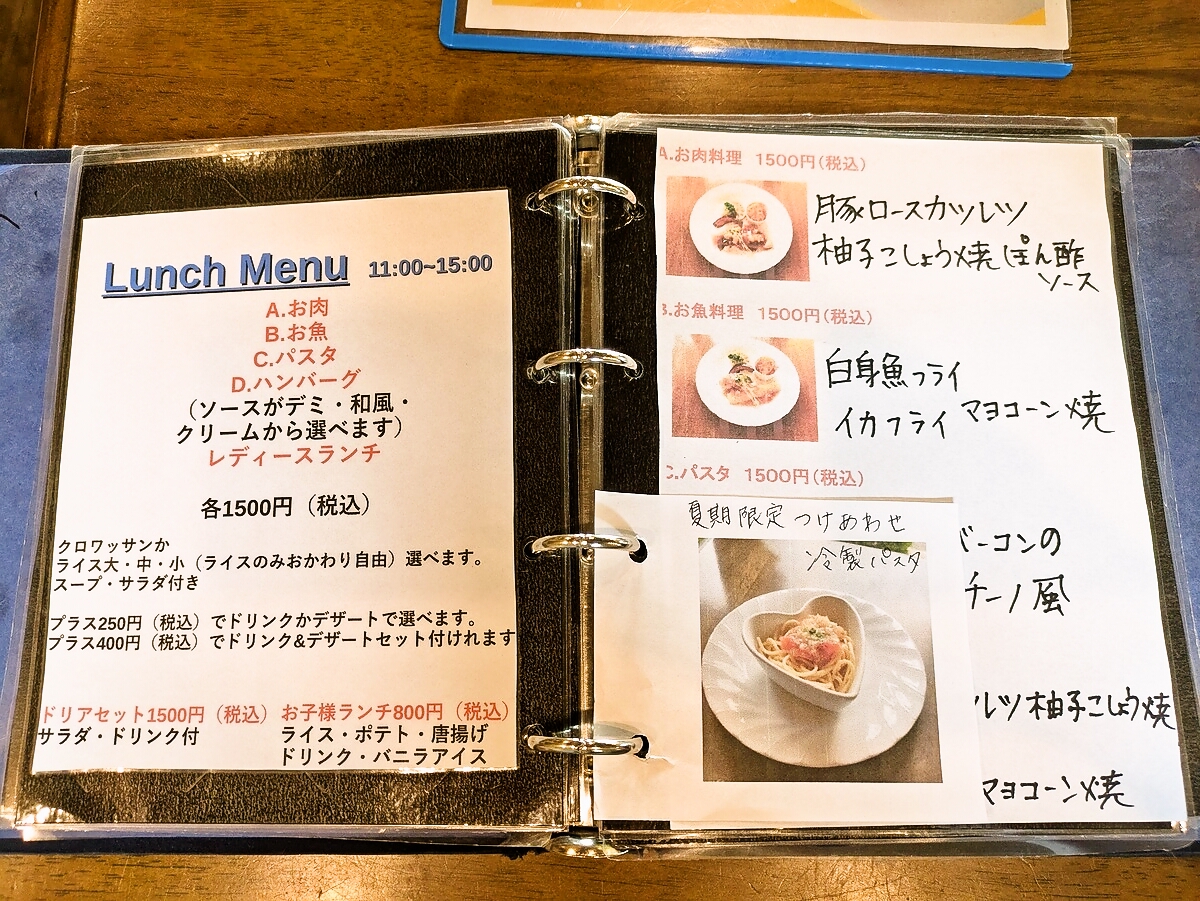 Lunch Menu 11:00~15:00
A.お肉
B.お魚
C.パスタ
D.ハンバーグ
（ソースがデミ・和風・
クリームから選べます）
レディースランチ
各1500円（税込）
クロワッサンか
ライス大・中・小（ライスのみおかわり自由）選べます。
スープ・サラダ付き
プラス250円（税込）でドリンクかデザートで選べます。
プラス400円（税込）でドリンク&デザートセット付けれます
ドリアセット1500円（税込）
サラダ・ドリンク付
お子様ランチ800円（税込）
ライス・ポテト・唐揚げ
ドリンク・バニラアイス
A.お肉料理 1500円(税込)
豚ロースカツレツ
柚子こしょう焼 ぽん酢
ソース
B.お魚料理 1500円(税込)
白身魚フライ
イカフライ マヨコーン焼
C.パスタ 1500円(税込)
夏期限定 つけあわせ
冷製パスタ
ベーコンの
チーノ風
レツ 柚子こしょう焼
マヨコーン焼